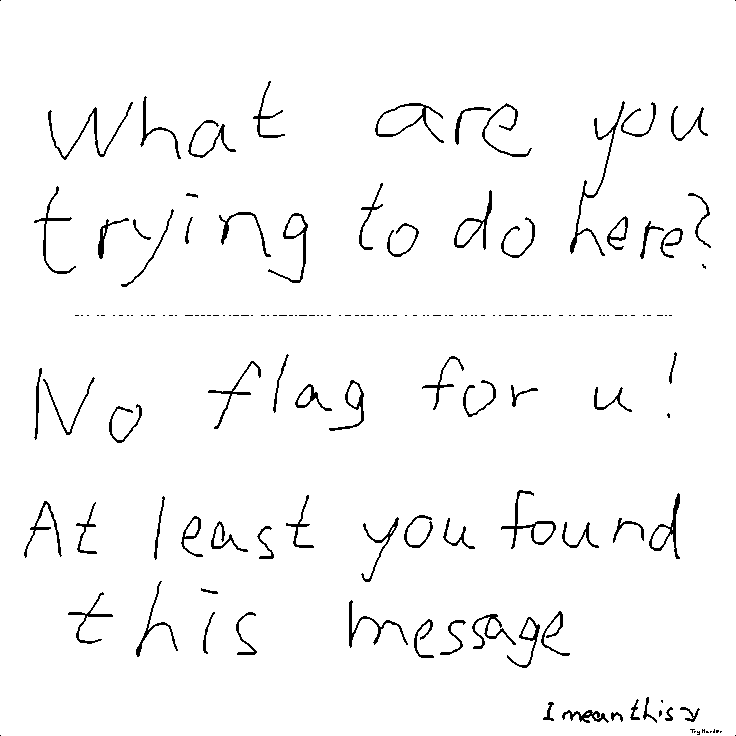 What are you
trying to do here?
No flag for u!
At least you found
this message
I mean this
Try Harder